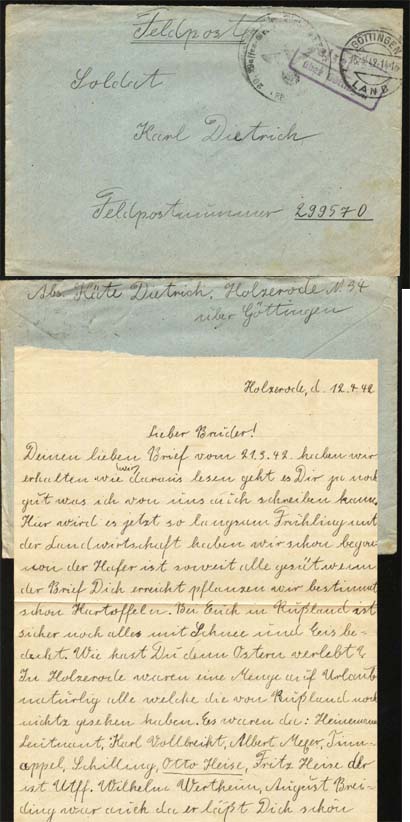 Feldpost
GÖTTINGEN
LAND
Soldat
Karl Dietrich
Feldpostnummer 29957D
Abs. Käte Dietrich, Holzerode N. 34
über Göttingen
Holzerode, d. 12.4.42
Lieber Bruder!
Deinen lieben Brief vom 21.3.42. haben wir
erhalten wie wir daraus lesen geht es Dir ja noch
gut was ich von uns auch schreiben kann.
Hier wird es jetzt so langsam Frühling mit
der Landwirtschaft haben wir schon begon
nen der Hafer ist soweit alle gesät wenn
der Brief Dich erreicht pflanzen wir bestimmt
schon Kartoffeln. Bei Euch in Rußland ist
sicher noch alles mit Schnee und Eis be-
deckt. Wie hast Du denn Ostern verlebt?
In Holzerode waren eine Menge auf Urlaub
natürlig alle welche die von Rußland noch
nichts gesehen haben. Es waren da: Heinemann
Leutnant, Karl Vollbrecht, Albert Meyer, Timm-
appel, Schilling, Otto Heise, Fritz Heise der
ist Utff. Wilhelm Wertheim, August Brei-
ding war auch da er läßt Dich schön